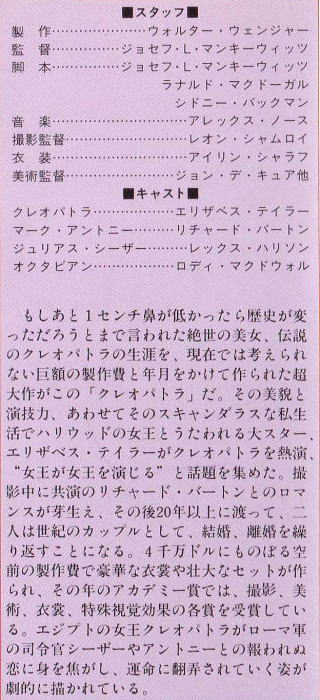 ■スタッフ■
製　作……………………ウォルター・ウェンジャー
監　督………………ジョセフ・L・マンキーウィッツ
脚　本………………ジョセフ・L・マンキーウィッツ
ラナルド・マクドーガル
シドニー・バックマン
音　楽……………………………アレックス・ノース
撮影監督…………………………レオン・シャムロイ
衣　装……………………………アイリン・シャラフ
美術監督……………………ジョン・デ・キュア他
■キャスト■
クレオパトラ………………エリザベス・テイラー
マーク・アントニー………リチャード・バートン
ジュリアス・シーザー………レックス・ハリソン
オクタビアン…………………ロディ・マクドウォル
もしあと１センチ鼻が低かったら歴史が変
っただろうとまで言われた絶世の美女、伝説
のクレオパトラの生涯を、現在では考えられ
ない巨額の製作費と年月をかけて作られた超
大作がこの「クレオパトラ」だ。その美貌と
演技力、あわせてそのスキャンダラスな私生
活でハリウッドの女王とうたわれる大スター、
エリザベス・テイラーがクレオパトラを熱演、
“女王が女王を演じる”と話題を集めた。撮
影中に共演のリチャード・バートンとのロマ
ンスが芽生え、その後20年以上に渡って、二
人は世紀のカップルとして、結婚、離婚を繰
り返すことになる。４千万ドルにものぼる空
前の製作費で豪華な衣裳や壮大なセットが作
られ、その年のアカデミー賞では、撮影、美
術、衣裳、特殊視覚効果の各賞を受賞してい
る。エジプトの女王クレオパトラがローマ軍
の司令官シーザーやアントニーとの報われぬ
恋に身を焦がし、運命に翻弄されていく姿が
劇的に描かれている。